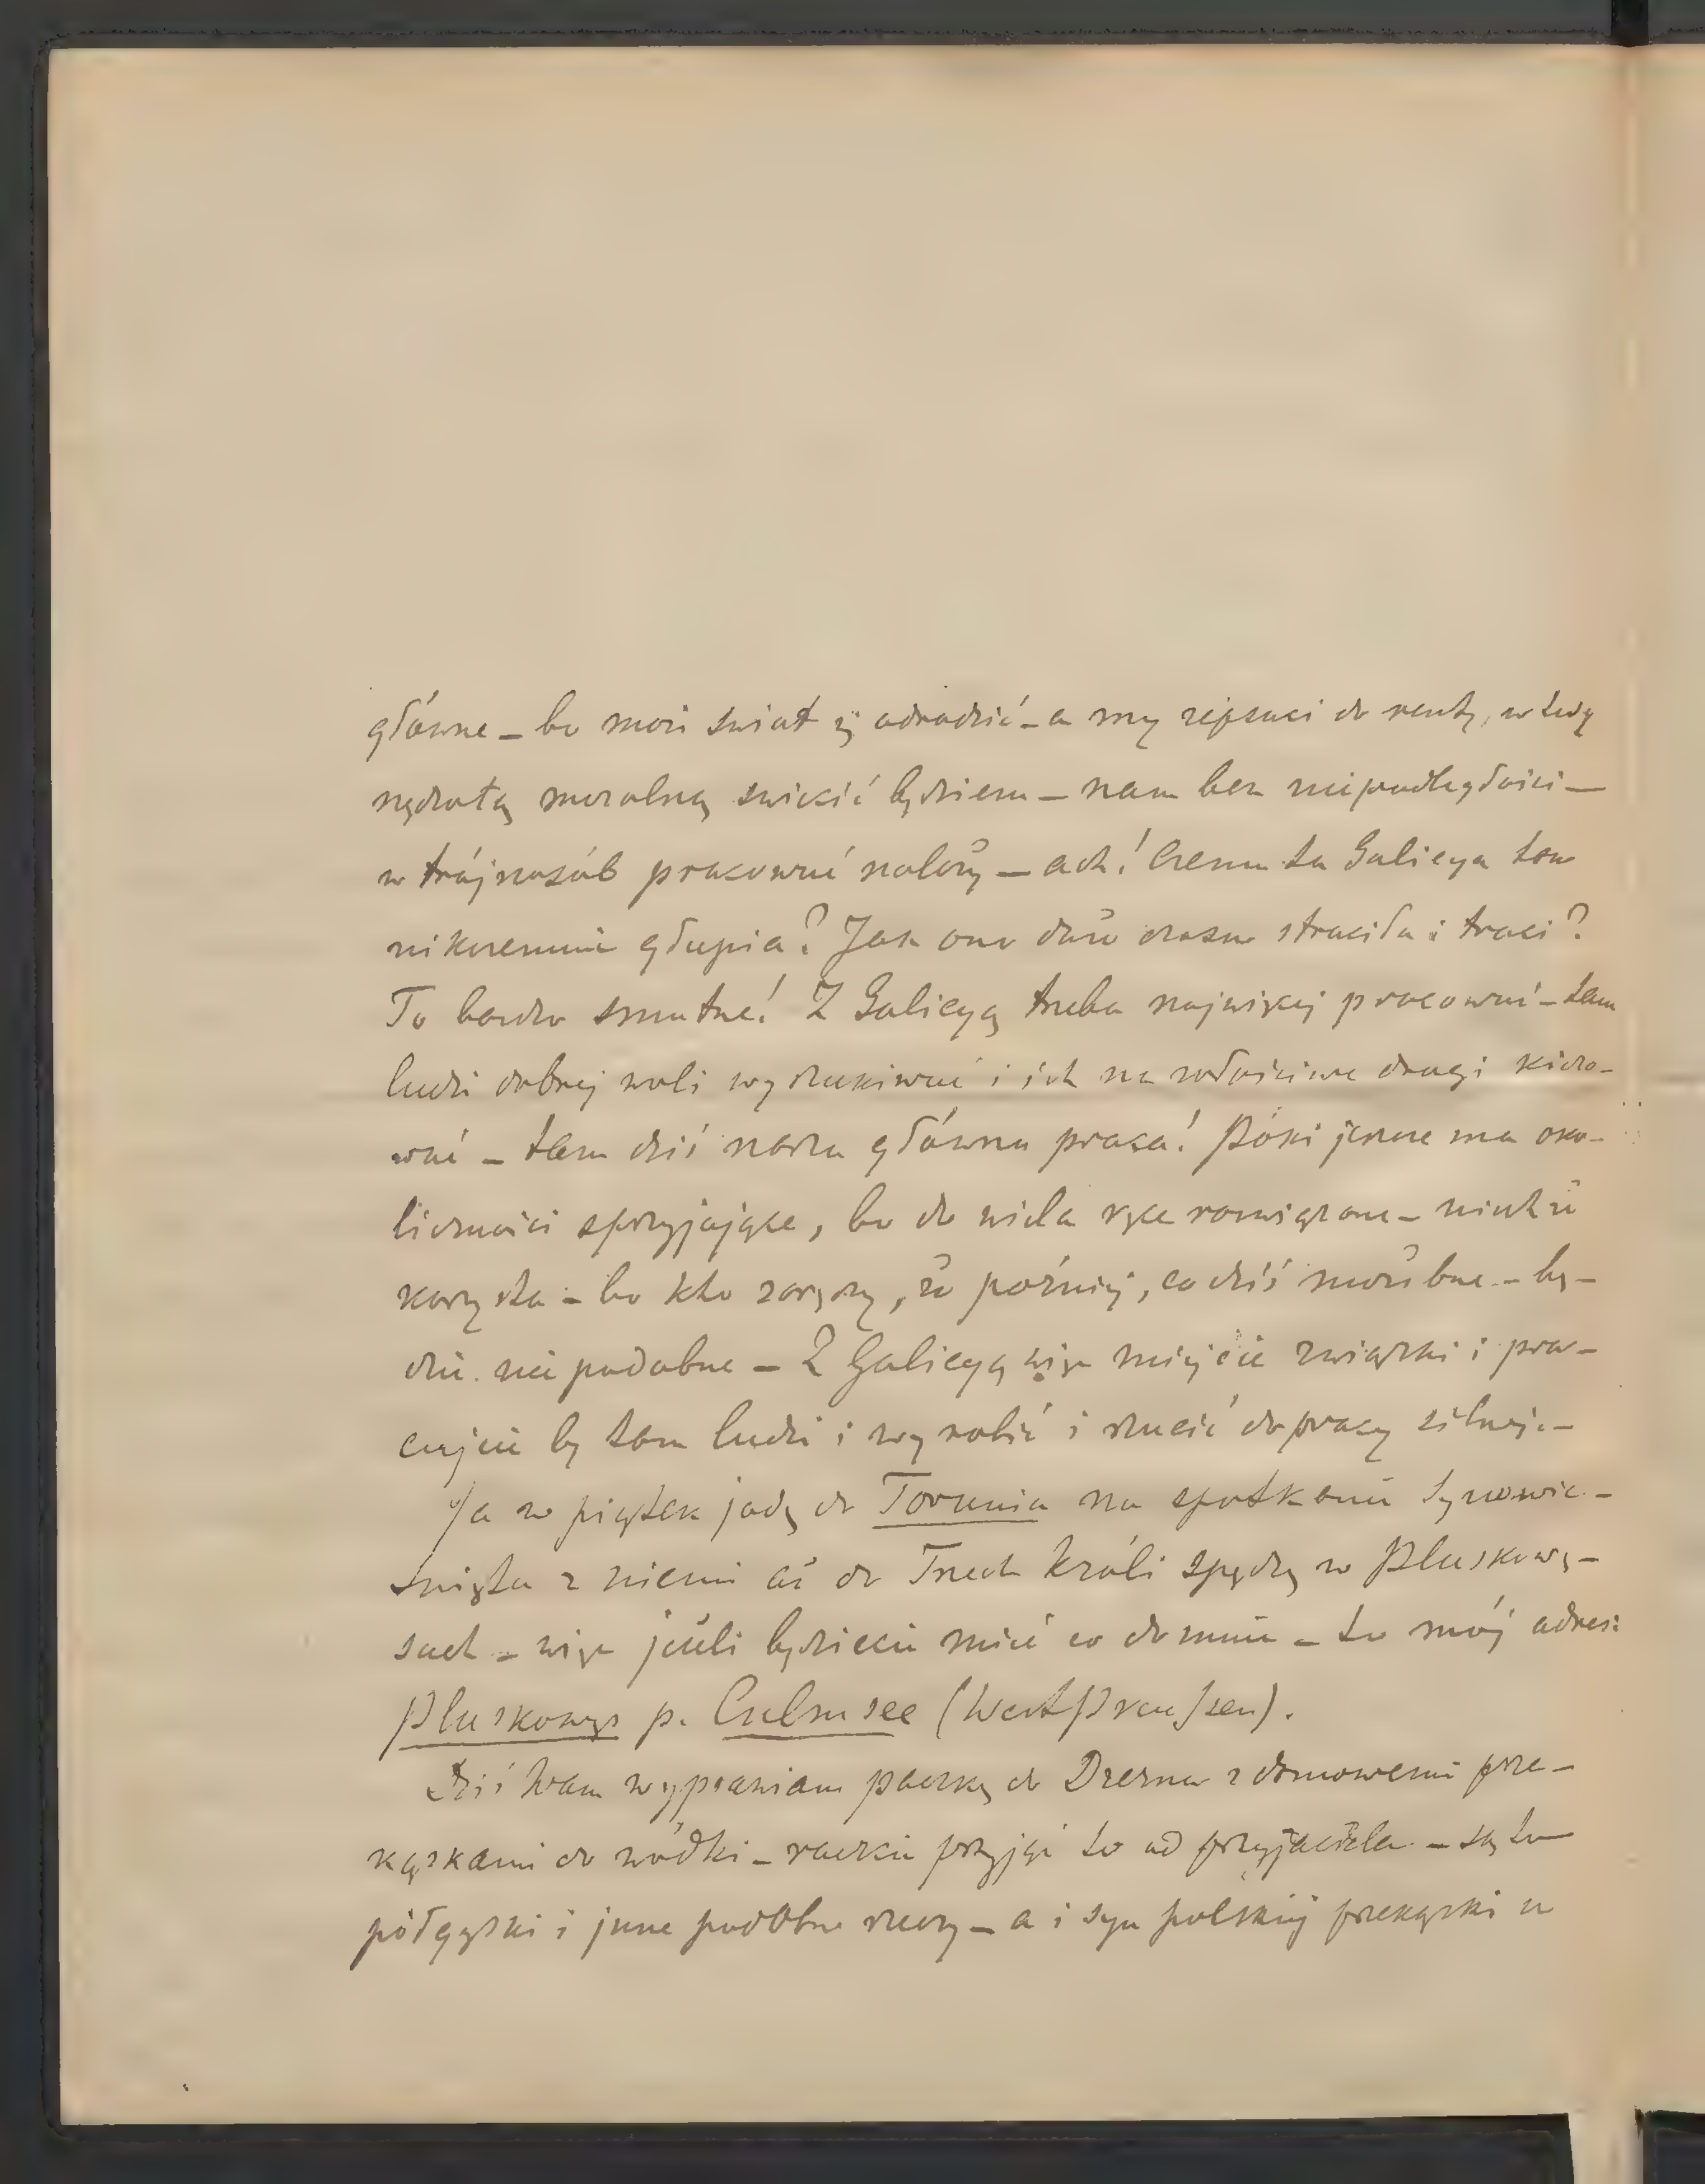 główne – bo może świat się odrodzić – a my zepsuci do reszty, wtedy
nędzotą moralną świecić będziem – nam bez niepodległości –
w trójnasób pracować należy – ach! Czemu ta Galicya tak
nikczemnie głupia? Jak ona dużo czasu straciła i traci?
To bardzo smutne! Z Galicyą trzeba najwięcej pracować – tam
ludzi dobrej woli wyszukiwać i ich na właściwe drogi kiero-
wać – tam dziś nasza główna praca! Póki jeszcze ma oko-
liczności sprzyjające, bo do wiela ręce rozwiązane – niech że
korzysta – bo kto zaręczy, że później, co dziś możebne – bę-
dzie niepodobne – Z Galicyą więc miejcie związki i pra-
cujcie by tam ludzi i wyrobić i rzucić do pracy silniej. –
Ja w piątek jadę do Torunia na spotkanie synowic –
święta z niemi aż do Trzech Króli spędzę w Pluskowę-
sach – więc jeżeli będziecie mieć co do mnie – to mój adres:
Pluskowęs p. Culmsee (WestPreußen).
Dziś Wam wyprawiam paczkę do Drezna z domowemi prze-
kąskami do wódki – raczcie przyjąć to od przyjaciela – są to
półgęski i inne podobne rzeczy – a i ser polskiej przekąski w